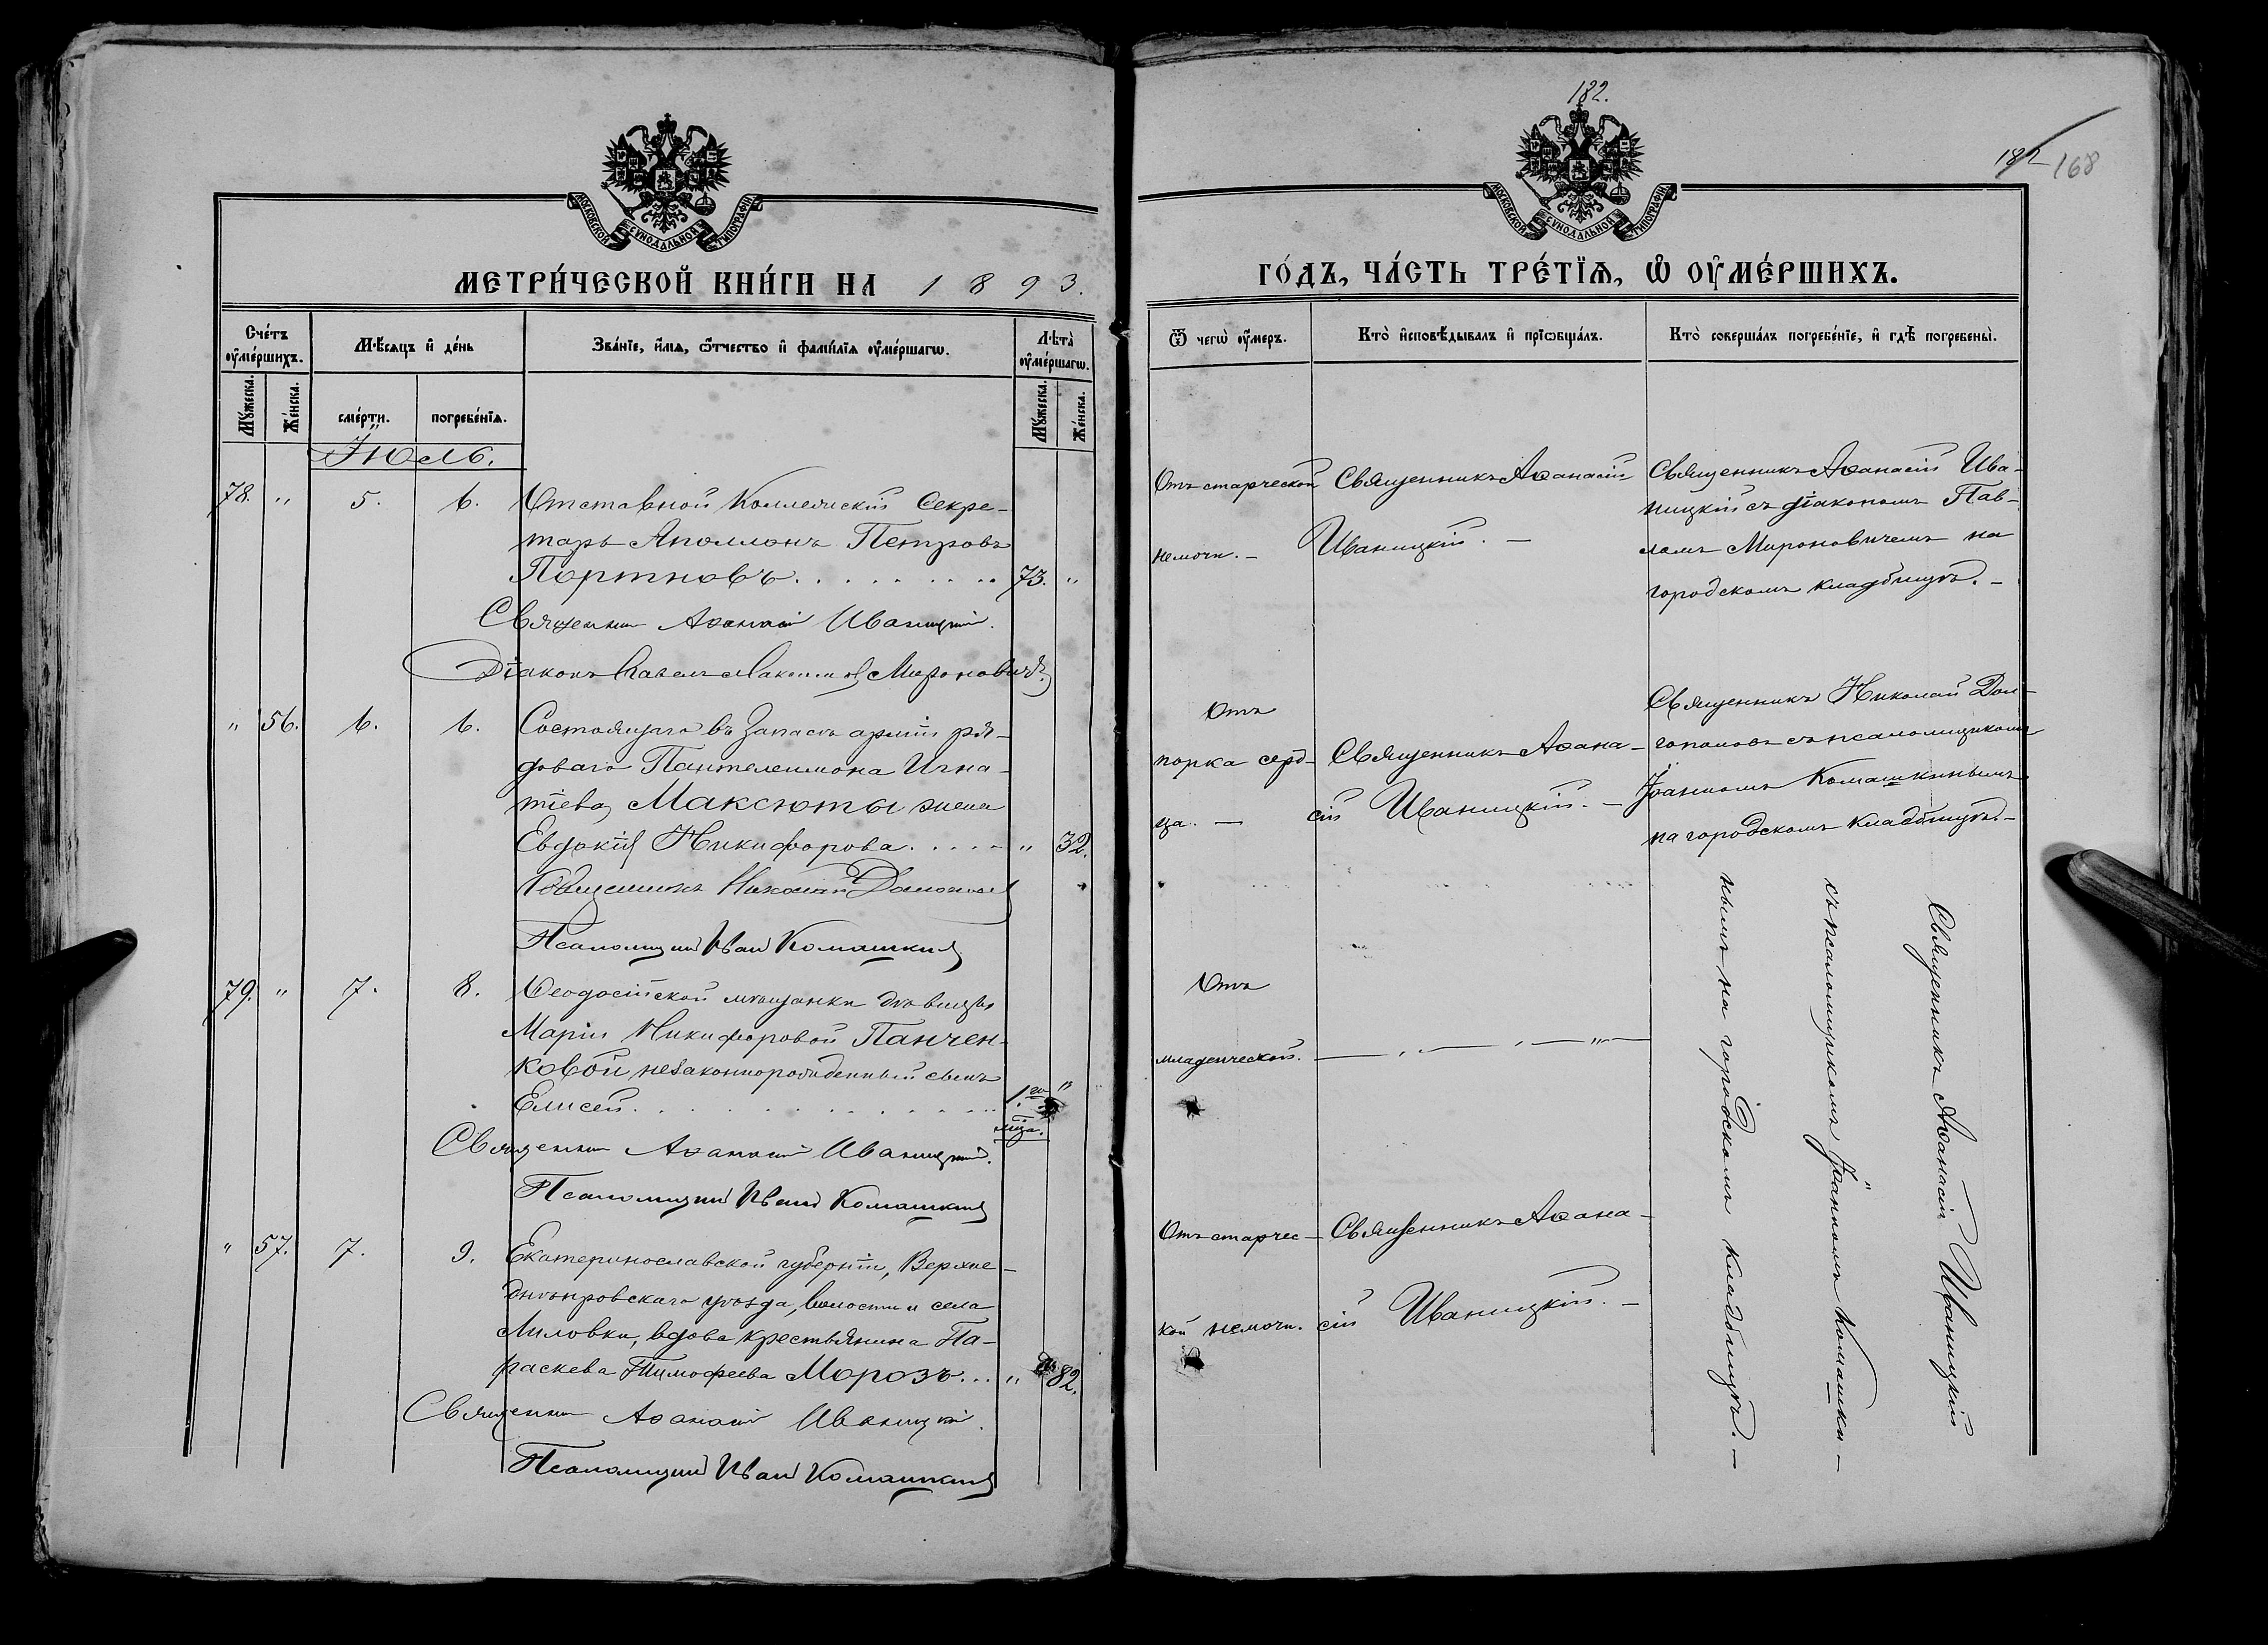 МОСКОВСКОЙ СѴНОДАЛЬНОЙ ТИПОГРАФІИ
МЕТРИ́ЧЕСКОЙ КНИ́ГИ НА 1893.
Сче́тъ ᲂу҆ме́ршихъ.
Мѣ́сяцъ и҆ де́нь
Зва́нїе, и҆́мѧ, ѻ҆́тчество и҆ фами́лїѧ ᲂу҆ме́ршагѡ.
Лѣ́та ᲂу҆ме́ршагѡ.
Мꙋ́жеска.
Же́нска.
сме́рти.
погребе́нїѧ.
Мꙋ́жеска.
Же́нска.
Іюль.
78. " 5. 6. Отставной Коллежскій Секре-
тарь Аполлонъ Петровъ
Портновъ. . . . . . . . . 73. "
Священник Аѳанасій Иваницкій.
Діаконъ Павелъ Мироновичъ
" 56. 6. 6. Состоящаго въ запасѣ арміи ря-
доваго Пантелеимона Игна-
тіева Максюты жена
Евдокія Никифорова. . . . . " 32.
Священникъ Николай
Псаломщик Иван Комашкин
79. " 7. 8. Ѳеодосійской мѣщанки дѣвицы
Маріи Никифоровой Панчен-
ковой незаконнорожденный сынъ
Елисей. . . . . . . . . . . 1го "
мца.
Священник Аѳанасій Иваницкій.
Псаломщик Иван Комашкин
" 57. 7. 9. Екатеринославской губерніи, Верхне-
днѣпровскаго уѣзда, волости и села
Лиловки, вдова крестьянина Па-
раскева Тимофеева Морозъ. . . " 82.
Священник Аѳанасій Иваницкій.
Псаломщик Иван Комашкин
182.
182 168
МОСКОВСКОЙ СѴНОДАЛЬНОЙ ТИПОГРАФІИ
ГО́ДЪ, ЧА́СТЬ ТРЕ́ТЇѦ, Ѡ҆ ОУ҆МЕ́РШИХЪ.
Ѿ чегѡ̀ ᲂу҆́меръ.
Кто̀ и҆сповѣ́дывалъ и҆ прїѡбща́лъ.
Кто̀ соверша́лъ погребе́нїе, и҆ гдѣ̀ погребены̀.
Отъ старческой
немочи. –
Священникъ Аѳанасій
Иваницкій. –
Священникъ Аѳанасій Ива-
ницкій съ діакономъ Пав-
ломъ Мироновичемъ на
городскомъ кладбищѣ. –
Отъ
порка серд-
ца. –
Священникъ Аѳана-
сій Иваницкій. –
Священникъ Николай Дол-
гополовъ съ псаломщикомъ
Іоанномъ Комашкинымъ
на городскомъ кладбищѣ. –
Отъ
младенческой.
Священникъ Аѳанасій Иваницкій
съ псаломщикомъ Іоанномъ Комашки-
нымъ на городскомъ кладбищѣ. –
Отъ старчес-
кой немочи.
Священникъ Аѳана-
сій Иваницкій. –